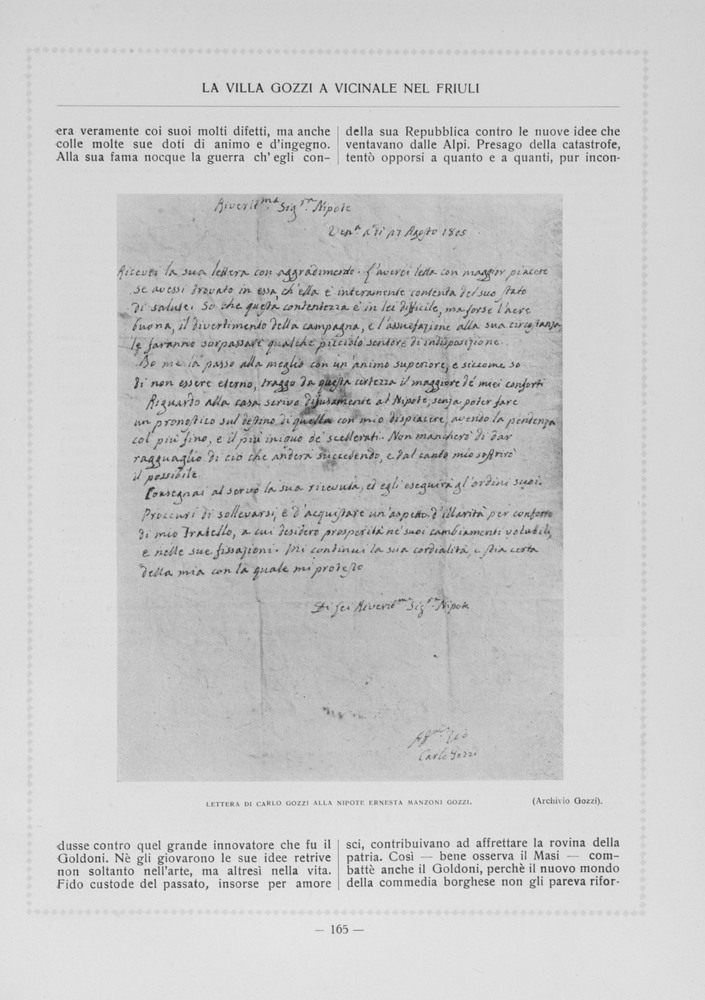 LA VILLA GOZZI A VICINALE NEL FRIULI
era veramente coi suoi molti difetti, ma anche
colle molte sue doti di animo e d'ingegno.
Alla sua fama nocque la guerra ch'egli con-
della sua Repubblica contro le nuove idee che
ventavano dalle Alpi. Presago della catastrofe,
tentò opporsi a quanto e a quanti, pur incon-
Riverit.ma Sig.ra Nipote
Ven.a a dì 27 Agosto 1805
Ricevei la sua lettera con aggradimento. L'averei letta con maggior piacere
se avessi trovato in essa, ch'ella è interamente contenta del suo stato
di salute. So che questa contentezza è in lei difficile, ma forse l'aere
buona, il divertimento della campagna, e l'assuefazione alla sua circostanza,
le faranno sorpassare qualche picciolo sentore di indisposizione.
Io me la passo alla meglio con un'animo superiore, e siccome so
di non essere eterno, traggo da questa certezza il maggiore de' miei conforti
Riguardo alla casa scrivo difusamente al Nipote, senza poter fare
un pronostico sul destino di quella con mio dispiacere, avendo la pendenza
col più fino, e il più iniquo de' scellerati. Non mancherò di dar
ragguaglio di ciò che anderà succedendo, e dal canto mio soffrirò
il possibile.
Consegnai al servo la sua ricevuta, ed egli eseguirà gl'ordini suoi.
Proccuri di sollevarsi, e d'acquistare un'aspetto d'illarità per conforto
di mio Fratello, a cui desidero prosperità ne' suoi cambiamenti volubili,
e nelle sue fissazioni. Mi continui la sua cordialità, e stia certa
della mia con la quale mi protesto
Di Lei Riverit.ma Sig.ra Nipote
Aff.mo Zio
Carlo Gozzi
LETTERA DI CARLO GOZZI ALLA NIPOTE ERNESTA MANZONI GOZZI.
(Archivio Gozzi).
dusse contro quel grande innovatore che fu il
Goldoni. Nè gli giovarono le sue idee retrive
non soltanto nell'arte, ma altresì nella vita.
Fido custode del passato, insorse per amore
sci, contribuivano ad affrettare la rovina della
patria. Così — bene osserva il Masi — com-
battè anche il Goldoni, perchè il nuovo mondo
della commedia borghese non gli pareva rifor-
— 165 —